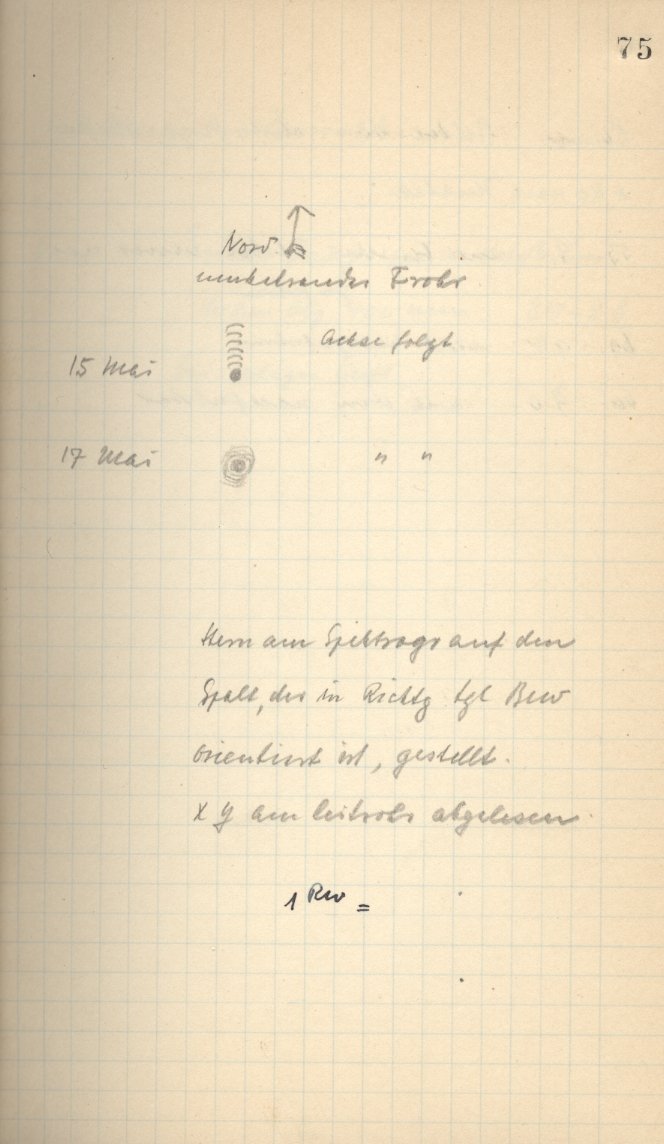 75
Nord
umkehrendes Frohr
Achse folgt
15 Mai
17 Mai " "
Stern am Spektrogr auf den
Spalt, der in Richtg tgl Bew
orientiert ist, gestellt.
x y am Leitrohr abgelesen
1 Rev =